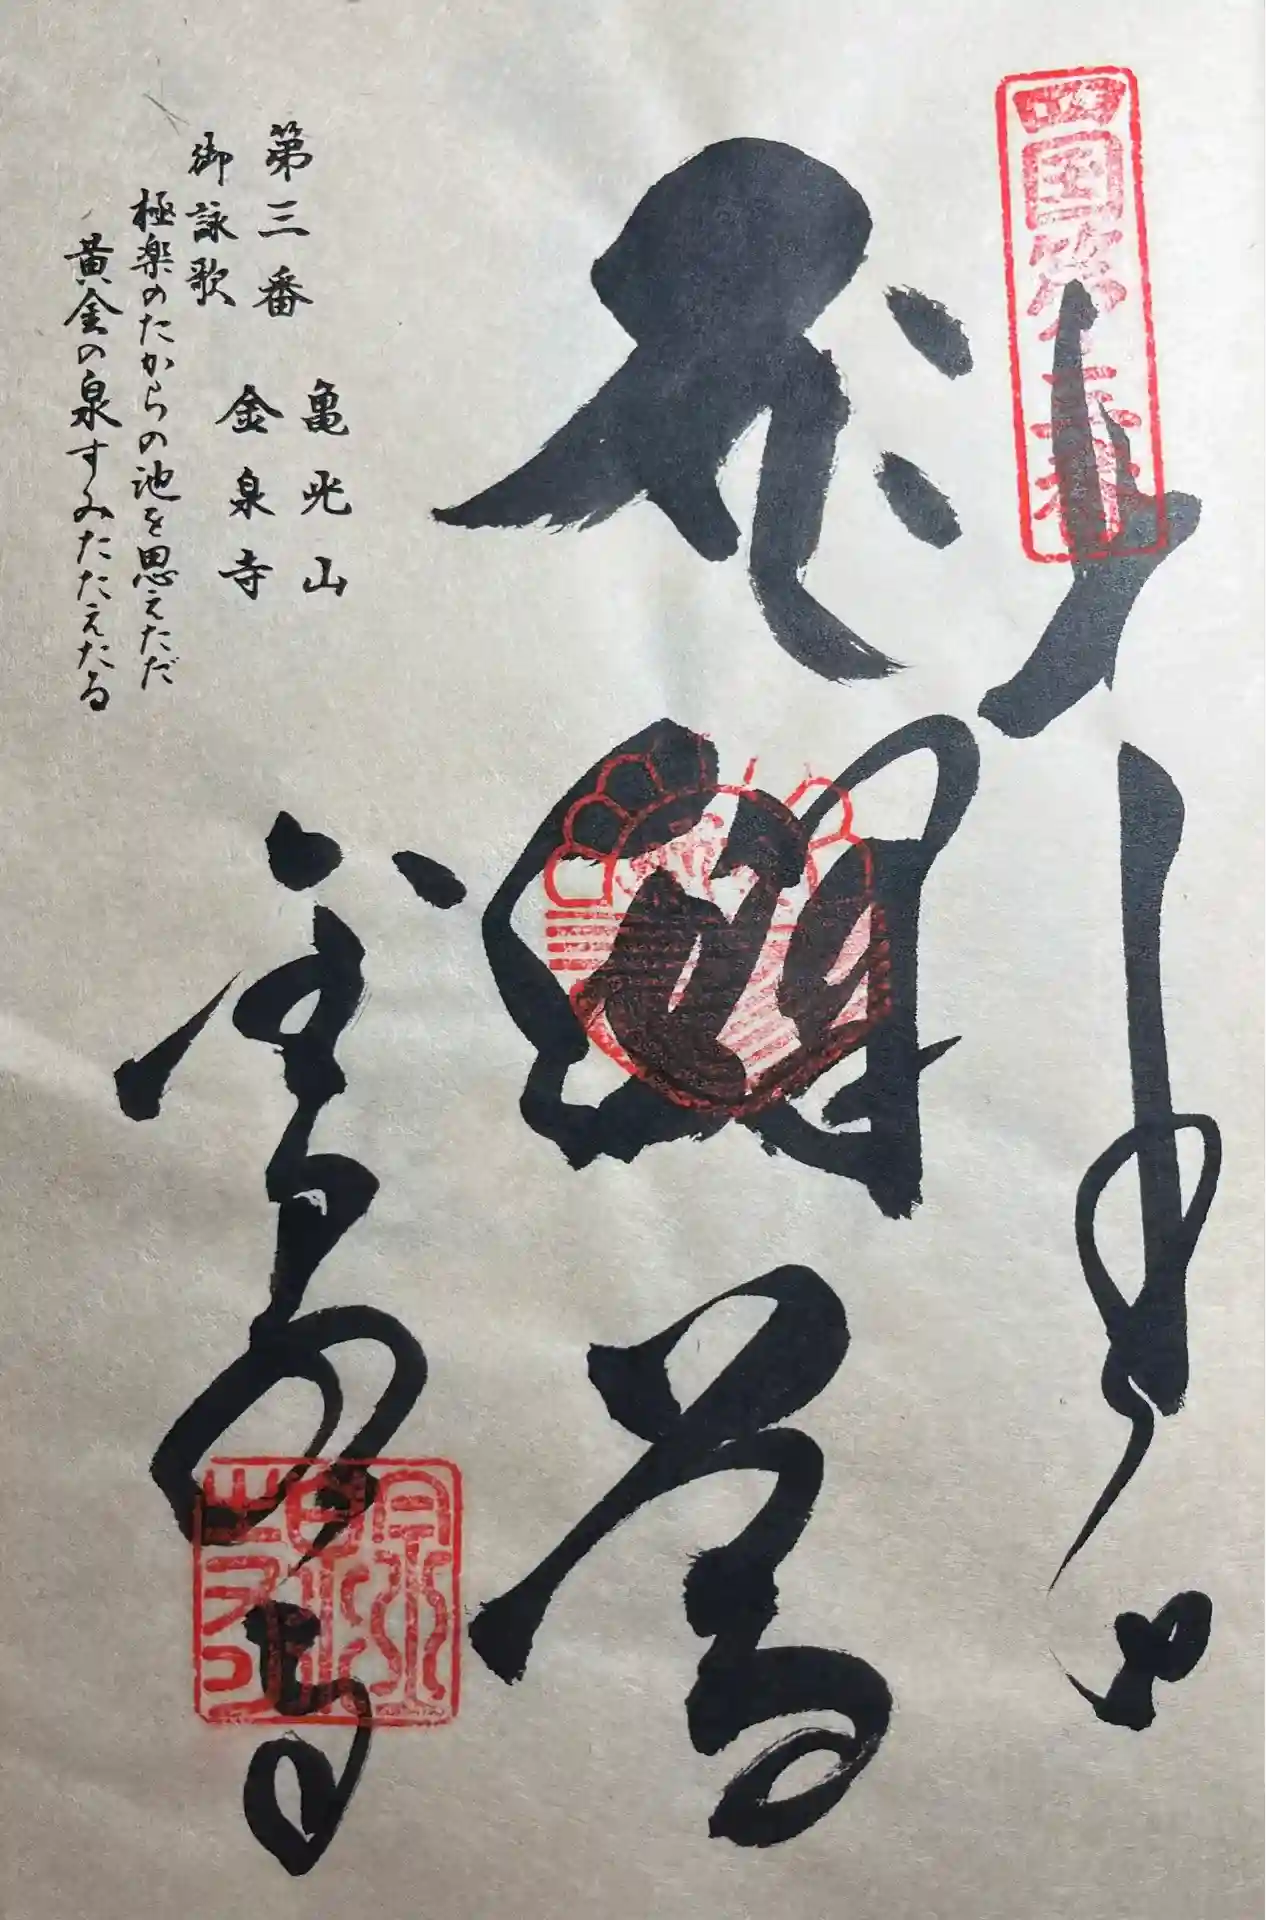 四国第三番
奉
釈迦堂
金泉寺
金泉寺
第三番
亀光山
金泉寺
御詠歌
極楽のたからの池を思えただ
黄金の泉すみたたえたる